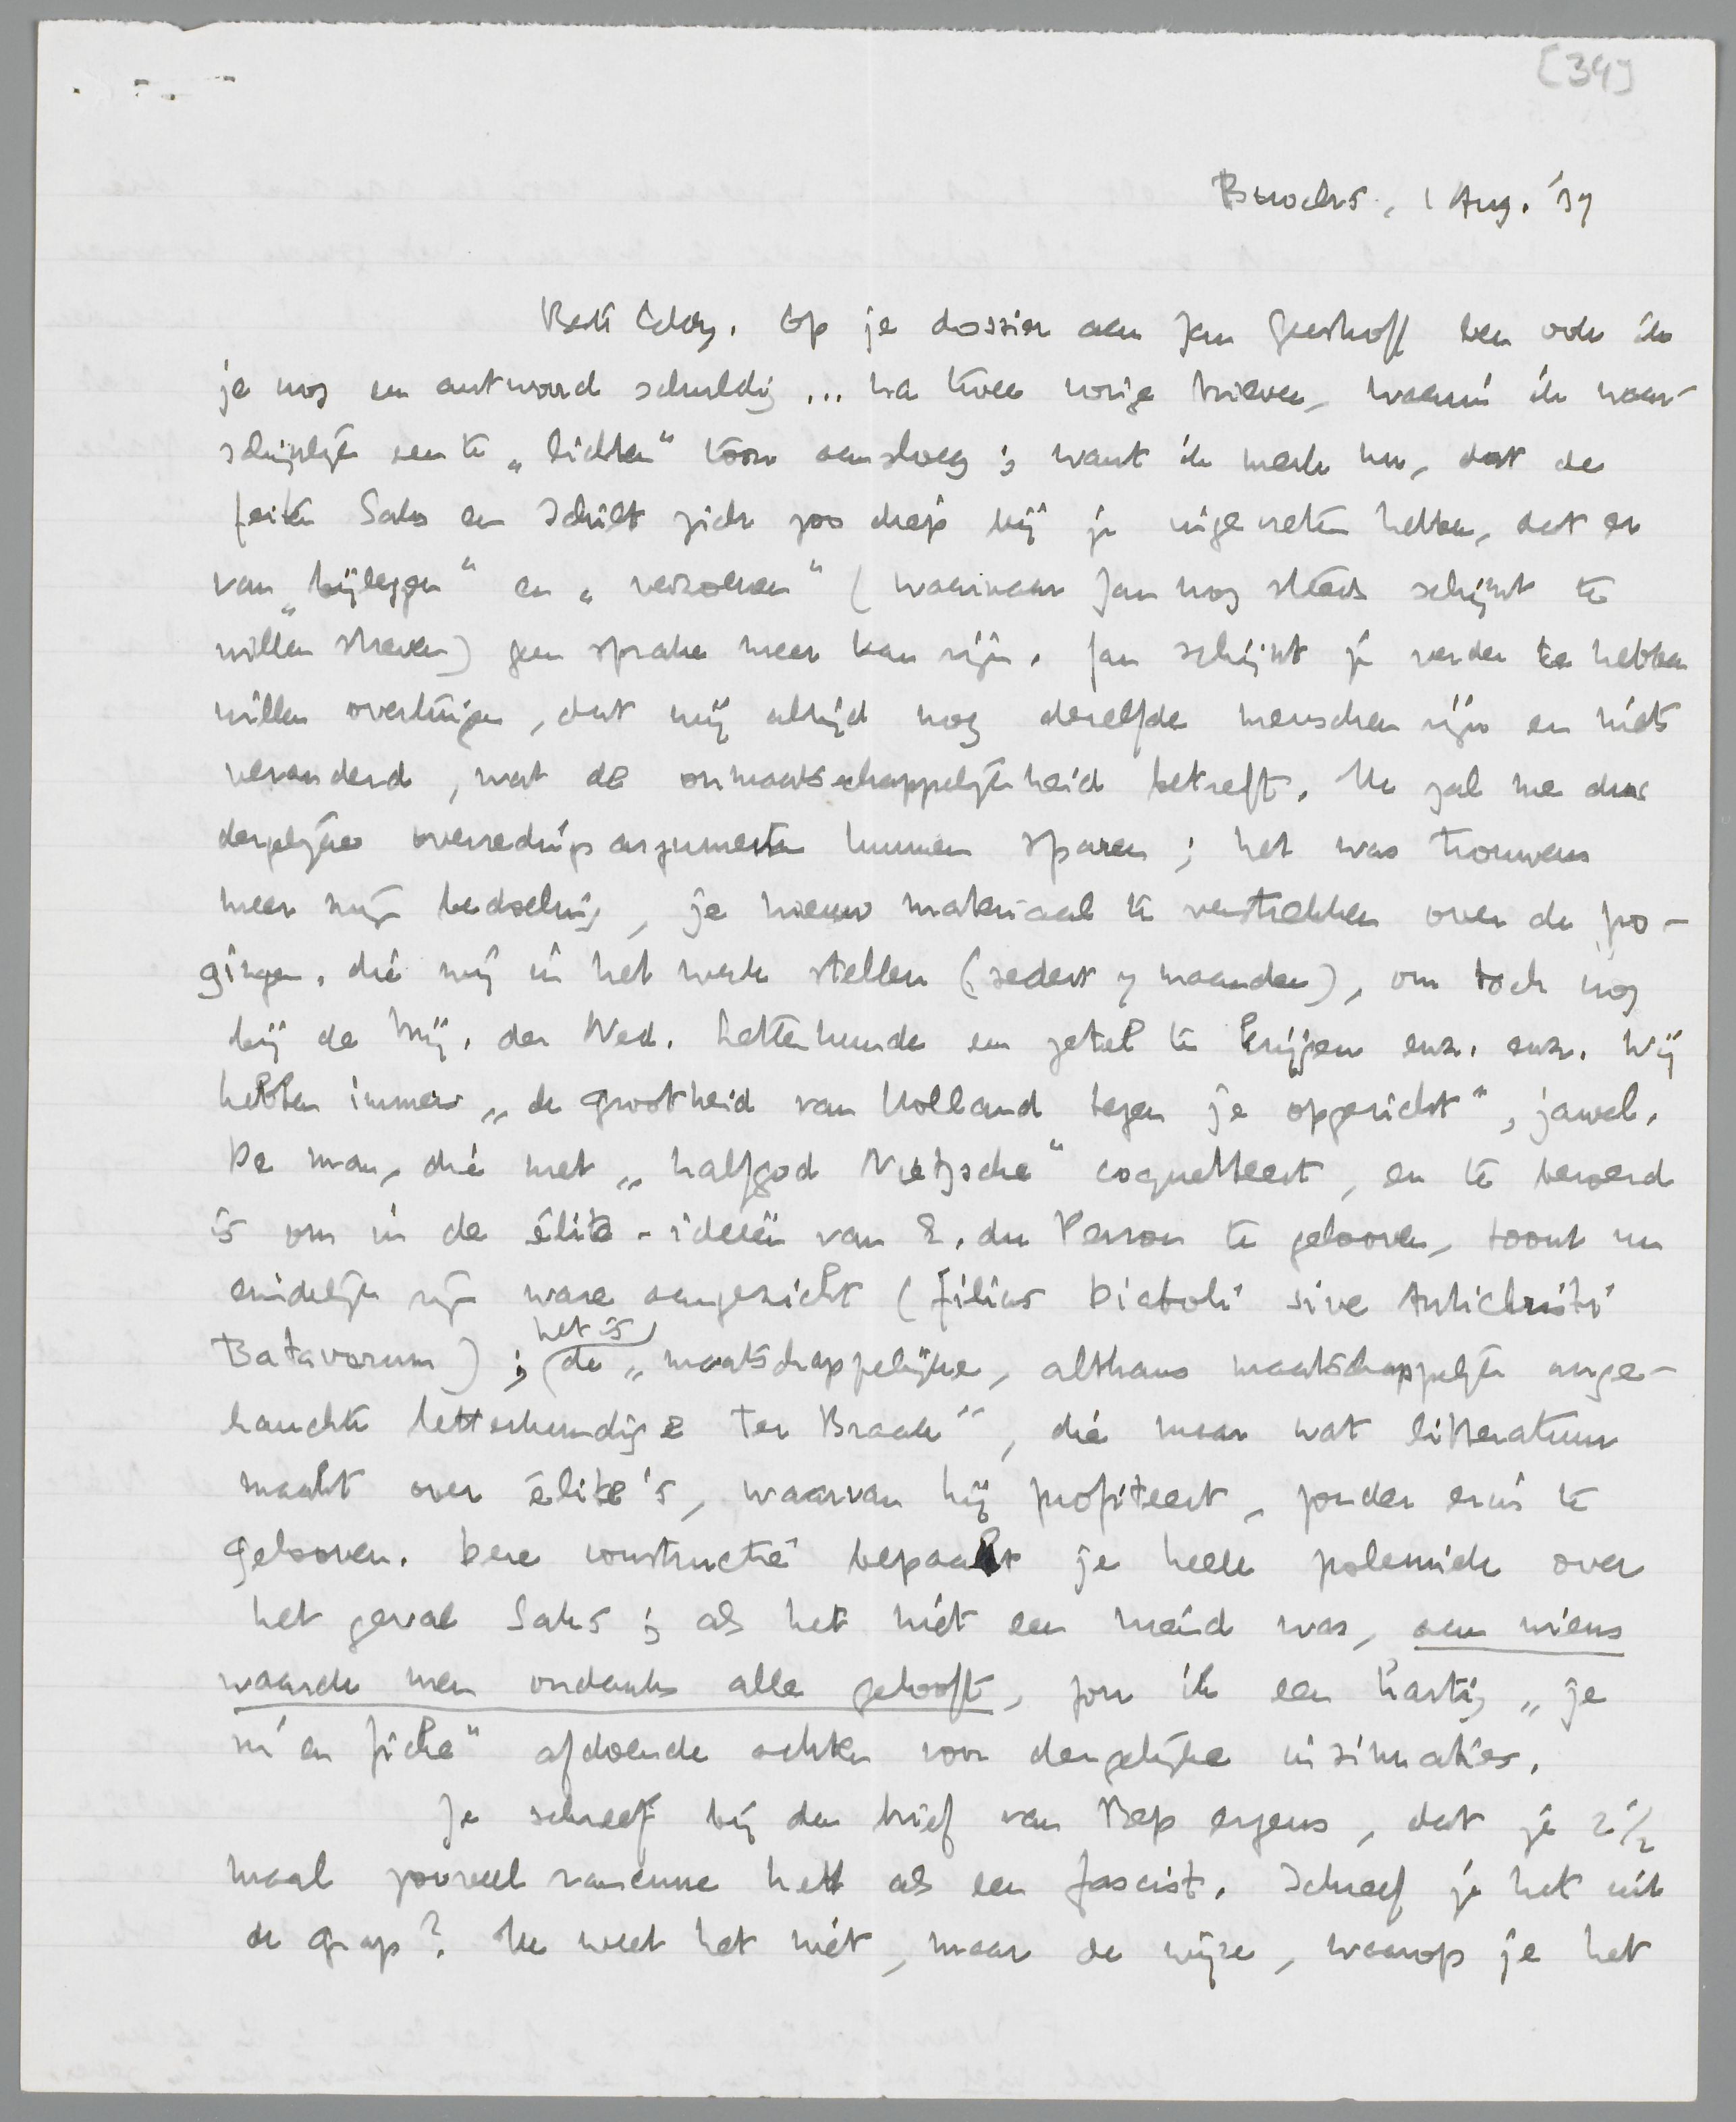 [34]
Broeks, 1 Aug. '37
Beste Eddy. Op je dossier aan Jan Greshoff ben ook ik
je nog een antwoord schuldig ... na twee vorige brieven, waarin ik waar-
schijnlijk een te „lichten” toon aansloeg; want ik merk nu, dat de
feiten Saks en Schilt zich zoo diep bij je ingevreten hebben, dat er
van „bijleggen” en „verzoenen” (waarnaar Jan nog steeds schijnt te
willen streven) geen sprake meer kan zijn. Jan schijnt je verder te hebben
willen overtuigen, dat wij altijd nog dezelfde menschen zijn en niets
veranderd, wat de onmaatschappelijkheid betreft. Ik zal me dus
dergelijke overredingsargumenten kunnen sparen; het was trouwens
meer mijn bedoeling, je nieuw materiaal te verstrekken over de po-
gingen, die wij in het werk stellen (sedert 7 maanden), om toch nog
bij de Mij. der Ned. Letterkunde een zetel te krijgen enz. enz. Wij
hebben immers „de grootheid van Holland tegen je opgericht”, jawel.
De man, die met „halfgod Nietzsche” coquetteert, en te beroerd
is om in de élite-ideeën van E. du Perron te gelooven, toont nu
eindelijk zijn ware aangezicht (filius Diaboli sive Antichristi
Batavorum); het is de „maatschappelijke, althans maatschappelijk ange-
hauchte letterkundige Ter Braak”, die maar wat litteratuur
maakt over élite's, waarvan hij profiteert, zonder erin te
gelooven. Deze constructie bepaalt je heele polemiek over
het geval Saks; als het niet een vriend was, aan wiens
waarde men ondanks alles gelooft, zou ik een hartig „je
m'en fiche” afdoende achten voor dergelijke insinuaties.
Je schreef bij den brief van Bep ergens, dat je 2 1/2
maal zooveel rancune hebt als een fascist. Schreef je het uit
de grap? Ik weet het niet, maar de wijze, waarop je het